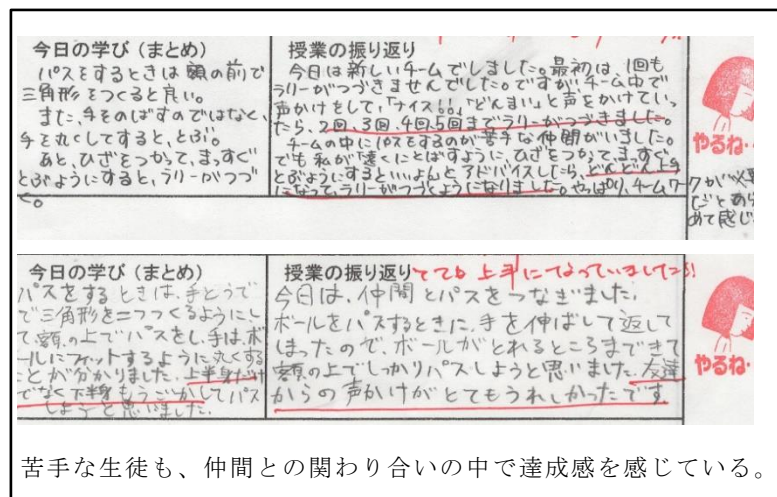 今日の学び（まとめ）
パスをするときは額の前で
三角形をつくると良い。
また、手をのばすのではなく、
手を丸くしてすると、とぶ。
あと、ひざをつかって、まっすぐ
とぶようにすると、ラリーがつづ
く。
授業の振り返り
今日は新しいチームでしました。最初は、1回も
ラリーがつづきませんでした。ですが、チーム中で
声かけをして、「ナイス!!」「どんまい」と声をかけていっ
たら、2回、3回、4回、5回までラリーがつづきました。
チームの中にパスをするのが苦手な仲間がいました。
でも私が「遠くにとばすように、ひざをつかって、まっすぐ
とぶようにするといいよ」とアドバイスしたら、どんどん上手
になって、ラリーがつづくようになりました。やっぱり、チームワ
ークが必要
だとあら
めて感じ
やるね・
今日の学び（まとめ）
パスをするときは、手とうで
で三角形を二つつくるようにし
て、額の上でパスをし、手は、ボ
ールにフィットするように丸くする
ことが分かりました。上半身だけ
でなく下半身もうごかしてパス
しようと思いました。
授業の振り返り とても上手になっていましたね!
今日は、仲間とパスをつなぎました。
ボールをパスするときに、手を伸ばして返して
しまったので、ボールがとれるところまできて
額の上でしっかりパスしようと思いました。友達
からの声かけがとてもうれしかったです。
やるね・
苦手な生徒も、仲間との関わり合いの中で達成感を感じている。